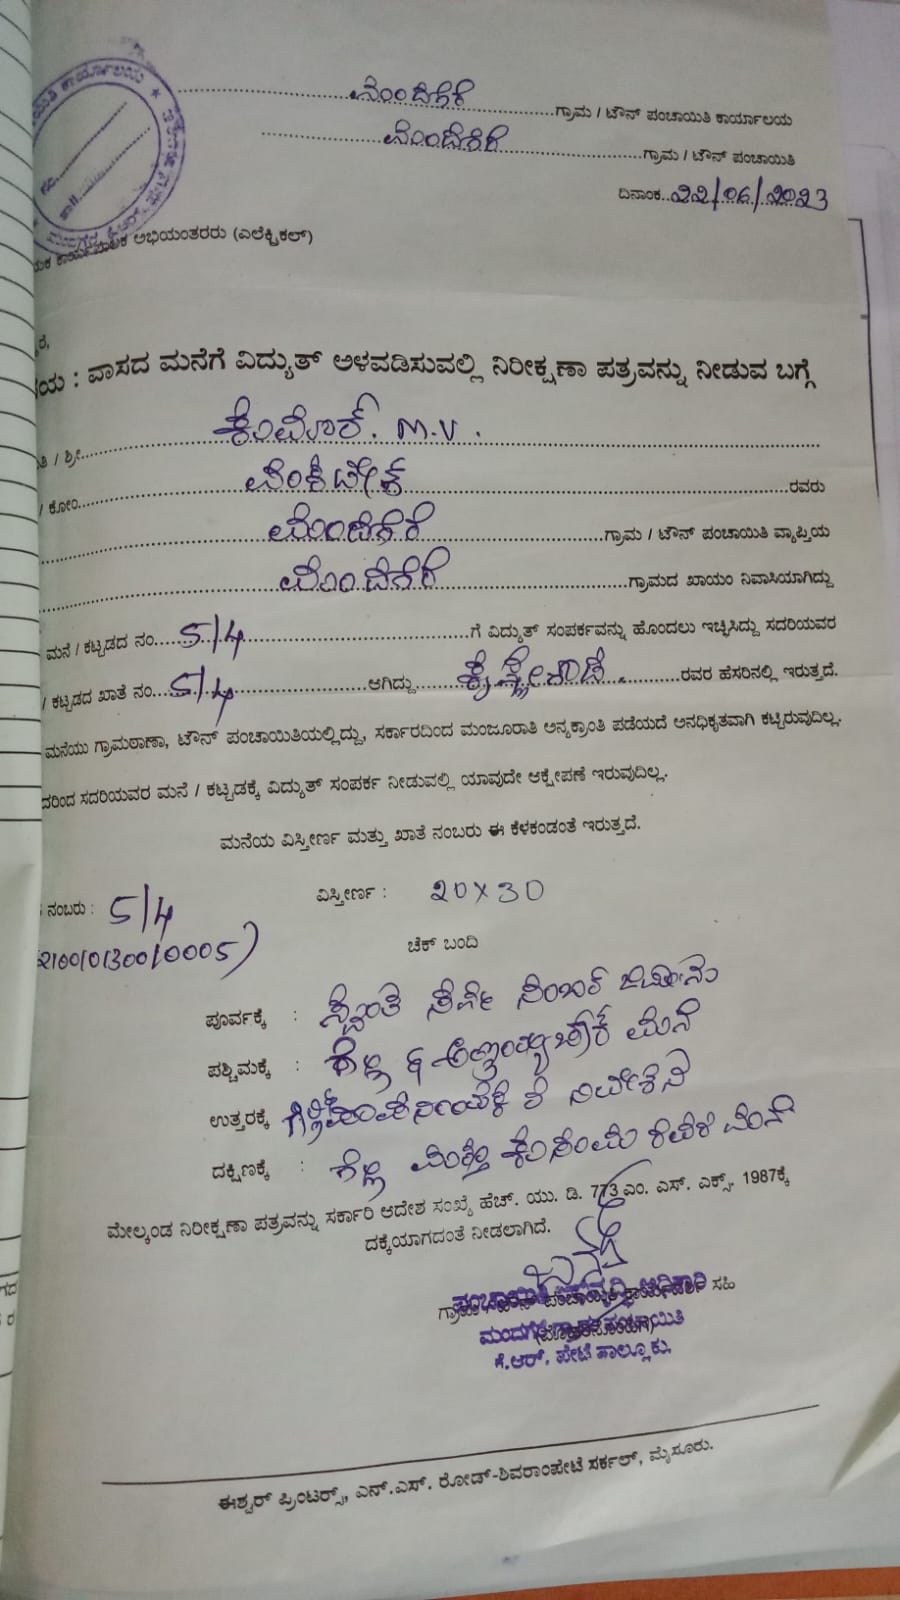 ಮಂದಗೆರೆ ಗ್ರಾಮ / ಟೌನ್ ಪಂಚಾಯಿತಿ ಕಾರ್ಯಾಲಯ
ಮಂದಗೆರೆ ಗ್ರಾಮ / ಟೌನ್ ಪಂಚಾಯಿತಿ
ದಿನಾಂಕ 22/06/2023
ಯಿತಿ ಕಾರ್ಯಾಲಯ
ಕಾರ್ಯಪಾಲಕ ಅಭಿಯಂತರರು (ಎಲೆಕ್ಟ್ರಿಕಲ್)
ರೆ,
ಯ : ವಾಸದ ಮನೆಗೆ ವಿದ್ಯುತ್ ಅಳವಡಿಸುವಲ್ಲಿ ನಿರೀಕ್ಷಣಾ ಪತ್ರವನ್ನು ನೀಡುವ ಬಗ್ಗೆ
ತಿ / ಶ್ರೀ M.V.
/ ಕೋಂ ವೆಂಕಟೇಶ ರವರು
ಮಂದಗೆರೆ ಗ್ರಾಮ / ಟೌನ್ ಪಂಚಾಯಿತಿ ವ್ಯಾಪ್ತಿಯ
ಮಂದಗೆರೆ ಗ್ರಾಮದ ಖಾಯಂ ನಿವಾಸಿಯಾಗಿದ್ದು
ಮನೆ / ಕಟ್ಟಡದ ನಂ. 5/4 ಗೆ ವಿದ್ಯುತ್ ಸಂಪರ್ಕವನ್ನು ಹೊಂದಲು ಇಚ್ಛಿಸಿದ್ದು ಸದರಿಯವರ
/ ಕಟ್ಟಡದ ಖಾತೆ ನಂ. 5/4 ಆಗಿದ್ದು ರವರ ಹೆಸರಿನಲ್ಲಿ ಇರುತ್ತದೆ.
ಮನೆಯು ಗ್ರಾಮಠಾಣಾ, ಟೌನ್ ಪಂಚಾಯಿತಿಯಲ್ಲಿದ್ದು, ಸರ್ಕಾರದಿಂದ ಮಂಜೂರಾತಿ ಅನ್ಯಕ್ರಾಂತಿ ಪಡೆಯದೆ ಅನಧಿಕೃತವಾಗಿ ಕಟ್ಟಿರುವುದಿಲ್ಲ.
ದರಿಂದ ಸದರಿಯವರ ಮನೆ / ಕಟ್ಟಡಕ್ಕೆ ವಿದ್ಯುತ್ ಸಂಪರ್ಕ ನೀಡುವಲ್ಲಿ ಯಾವುದೇ ಆಕ್ಷೇಪಣೆ ಇರುವುದಿಲ್ಲ.
ಮನೆಯ ವಿಸ್ತೀರ್ಣ ಮತ್ತು ಖಾತೆ ನಂಬರು ಈ ಕೆಳಕಂಡಂತೆ ಇರುತ್ತದೆ.
ನಂಬರು : 5/4 ವಿಸ್ತೀರ್ಣ : 20x30
ಚೆಕ್ ಬಂದಿ
ಪೂರ್ವಕ್ಕೆ : ಸ್ವಂತ ಸರ್ವೇ ನಂಬರ್ ಜಮೀನು
ಪಶ್ಚಿಮಕ್ಕೆ : ಮನೆ
ಉತ್ತರಕ್ಕೆ ನಿವೇಶನ
ದಕ್ಷಿಣಕ್ಕೆ : ಗಲ್ಲಿ ಮತ್ತು ಮನೆ
ಮೇಲ್ಕಂಡ ನಿರೀಕ್ಷಣಾ ಪತ್ರವನ್ನು ಸರ್ಕಾರಿ ಆದೇಶ ಸಂಖ್ಯೆ ಹೆಚ್. ಯು. ಡಿ. 773 ಎಂ. ಎಸ್. ಎಕ್ಸ್. 1987ಕ್ಕೆ
ದಕ್ಕೆಯಾಗದಂತೆ ನೀಡಲಾಗಿದೆ.
ಪಂಚಾಯಿತಿ ಅಭಿವೃದ್ಧಿ ಅಧಿಕಾರಿ
ಸಹಿ
ಮಂದಗೆರೆ ಗ್ರಾಮ ಪಂಚಾಯಿತಿ
ಕೆ.ಆರ್. ಪೇಟೆ ತಾಲ್ಲೂಕು.
ಈಶ್ವರ್ ಪ್ರಿಂಟರ್ಸ್, ಎನ್.ಎಸ್. ರೋಡ್-ಶಿವರಾಂಪೇಟೆ ಸರ್ಕಲ್, ಮೈಸೂರು.